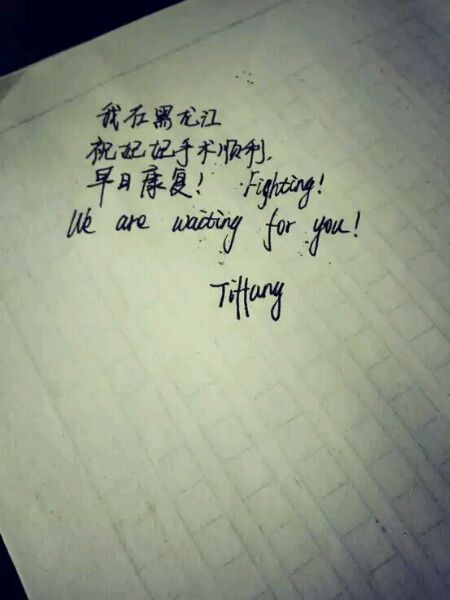 我在黑龙江
祝妃妃手术顺利,
早日康复! Fighting!
We are waiting for you!
Tiffany